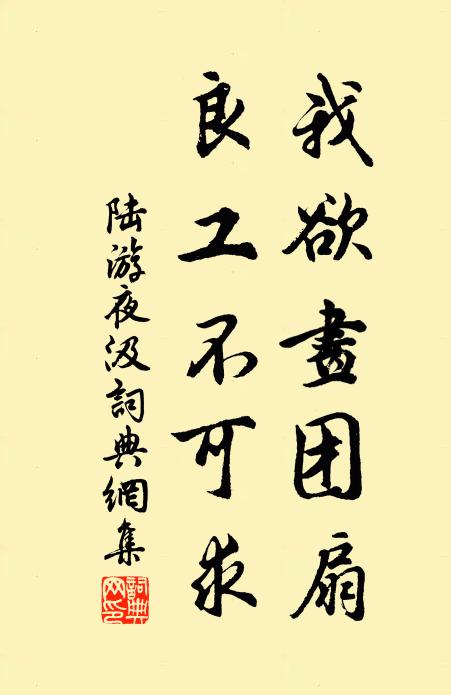 我欲畫团扇
良工不可求
陆游夜汲詞典網集
詞典网印